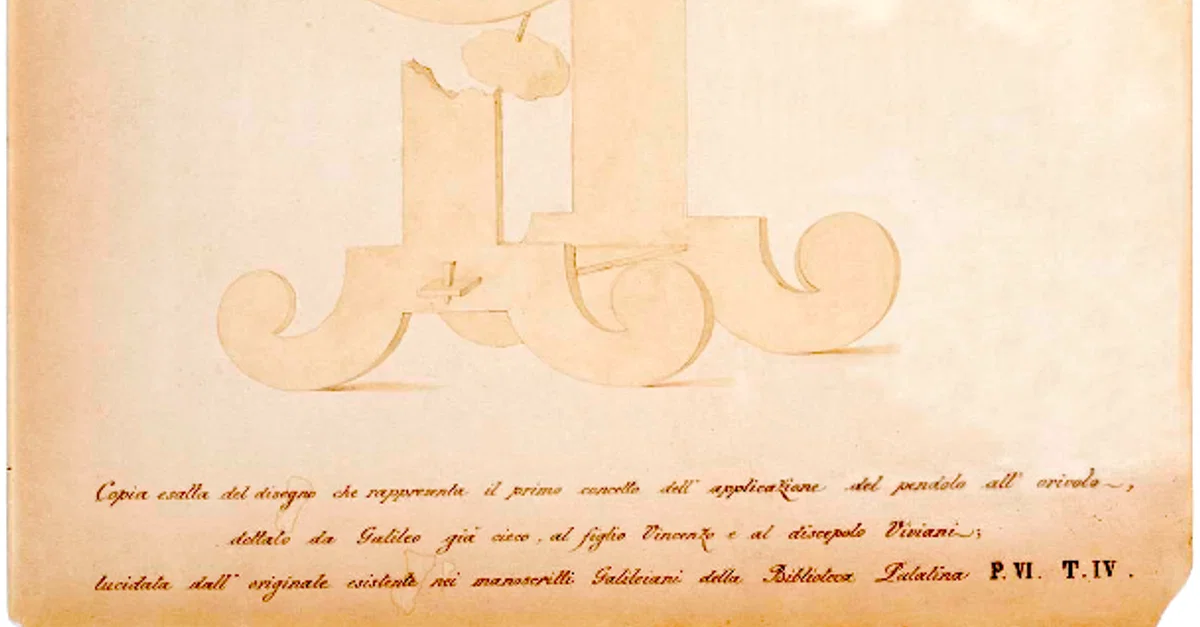 Copia esatta del disegno che rappresenta il primo concetto dell' applicazione del pendolo all' orivolo,
dettato da Galileo già cieco, al figlio Vincenzo e al discepolo Viviani;
lucidata dall' originale esistente nei manoscritti Galileiani della Biblioteca Palatina P. VI. T. IV.